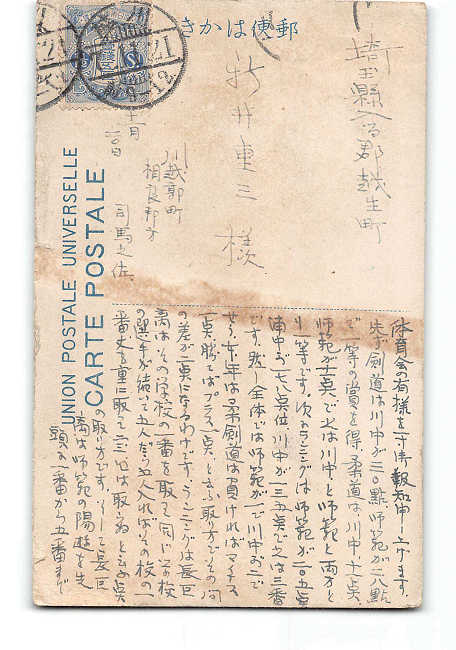 郵便はかき
UNION POSTALE UNIVERSELLE
CARTE POSTALE
埼玉縣入間郡越生町
新井重三様
十一月
二日
川越郭町
相良邦方
司馬之佐
体育会の有様を一寸御報知申し上げます。
先ず剣道は川中が三〇點師範が二八點
で一等の賞を得、柔道は川中、十一点、
師範が十一点で之は川中と師範と両方と
り一等です。次のランニングは師範が一〇五点
浦中が一七八点位川中が一三五点で之は三番
です。然し全体では師範が一で川中が二で
せう。本年は柔剣道は負ければマイナス
一点勝てばプラス一点と云ふ取り方でその間
の差が二点になるわけです。ランニングは長巨
离はその学校の一番を取って同じ学校
の選手が続いて五人だら五人入ればその校の一
番丈を重に取って二三は取らぬと云ふ点
の取り方です。そして長巨
离は師範の陽遊を先
頭に一番から五番まで